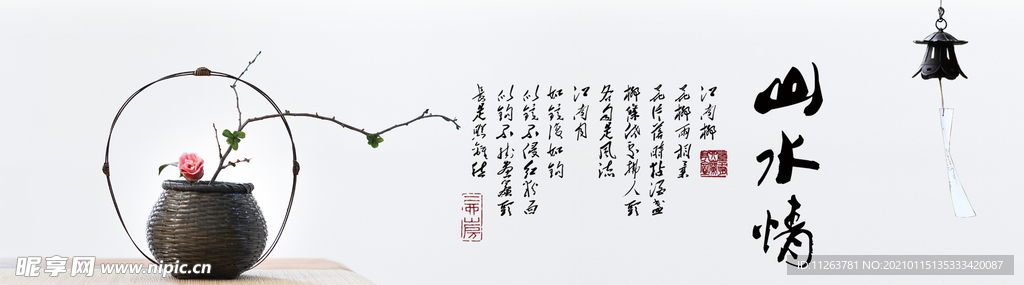 山水情
江南柳
花柳两相柔
花片落時粘酒盏
柳條低處拂人頭
各自是風流
江南月
如鏡復如钩
似鏡不侵红粉面
似钩不挂畫簾頭
長是照離愁
昵享网 www.nipic.cn
ID:11263781 NO:20210115135333420087